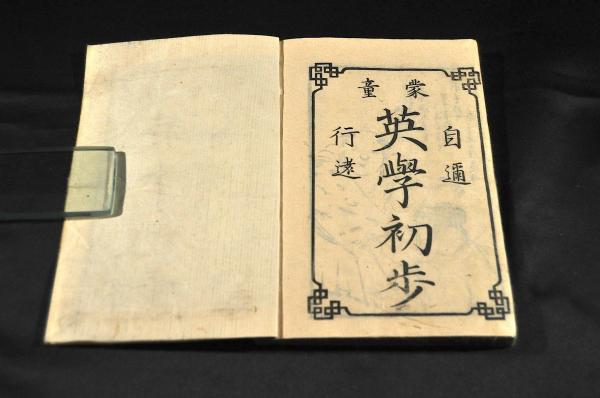 童蒙
行遠
英學初步
自邇